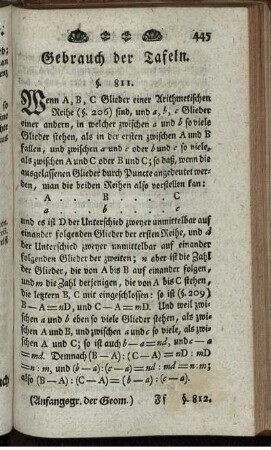 445
Gebrauch der Tafeln.
§. 811.
Wenn A, B, C Glieder einer Arithmetischen
Reihe (§. 206) sind, und a, b, c Glieder
einer andern, in welcher zwischen a und b so viele
Glieder stehen, als in der ersten zwischen A und B
fallen, und zwischen a und c oder b und c so viele,
als zwischen A und C oder B und C; so daß, wenn die
ausgelassenen Glieder durch Puncte angedeutet wer-
den, man die beiden Reihen also verstellen kan:
A . . B . . . C
a . . b . . . c
und es ist D der Unterschied zweyer unmittelbar auf
einander folgenden Glieder der ersten Reihe, und d
der Unterschied zweyer unmittelbar auf einander
folgenden Glieder der zweiten; n aber ist die Zahl
der Glieder, die von A bis B auf einander folgen,
und m die Zahl derjenigen, die von A bis C stehen,
die letztern B, C mit eingeschlossen: so ist (§. 209)
B — A = nD, und C — A = mD. Und weil zwi-
schen a und b eben so viele Glieder stehen, als zwi-
schen A und B, und zwischen a und c so viele, als zwi-
schen A und C; so ist auch b — a = nd, und c — a
= md. Demnach (B — A) : (C — A) = nD : mD
= n : m, und (b — a) : (c — a) = nd : md = n : m;
also (B — A) : (C — A) = (b — a) : (c — a).
(Anfangsgr. der Geom.) Ff §. 812.